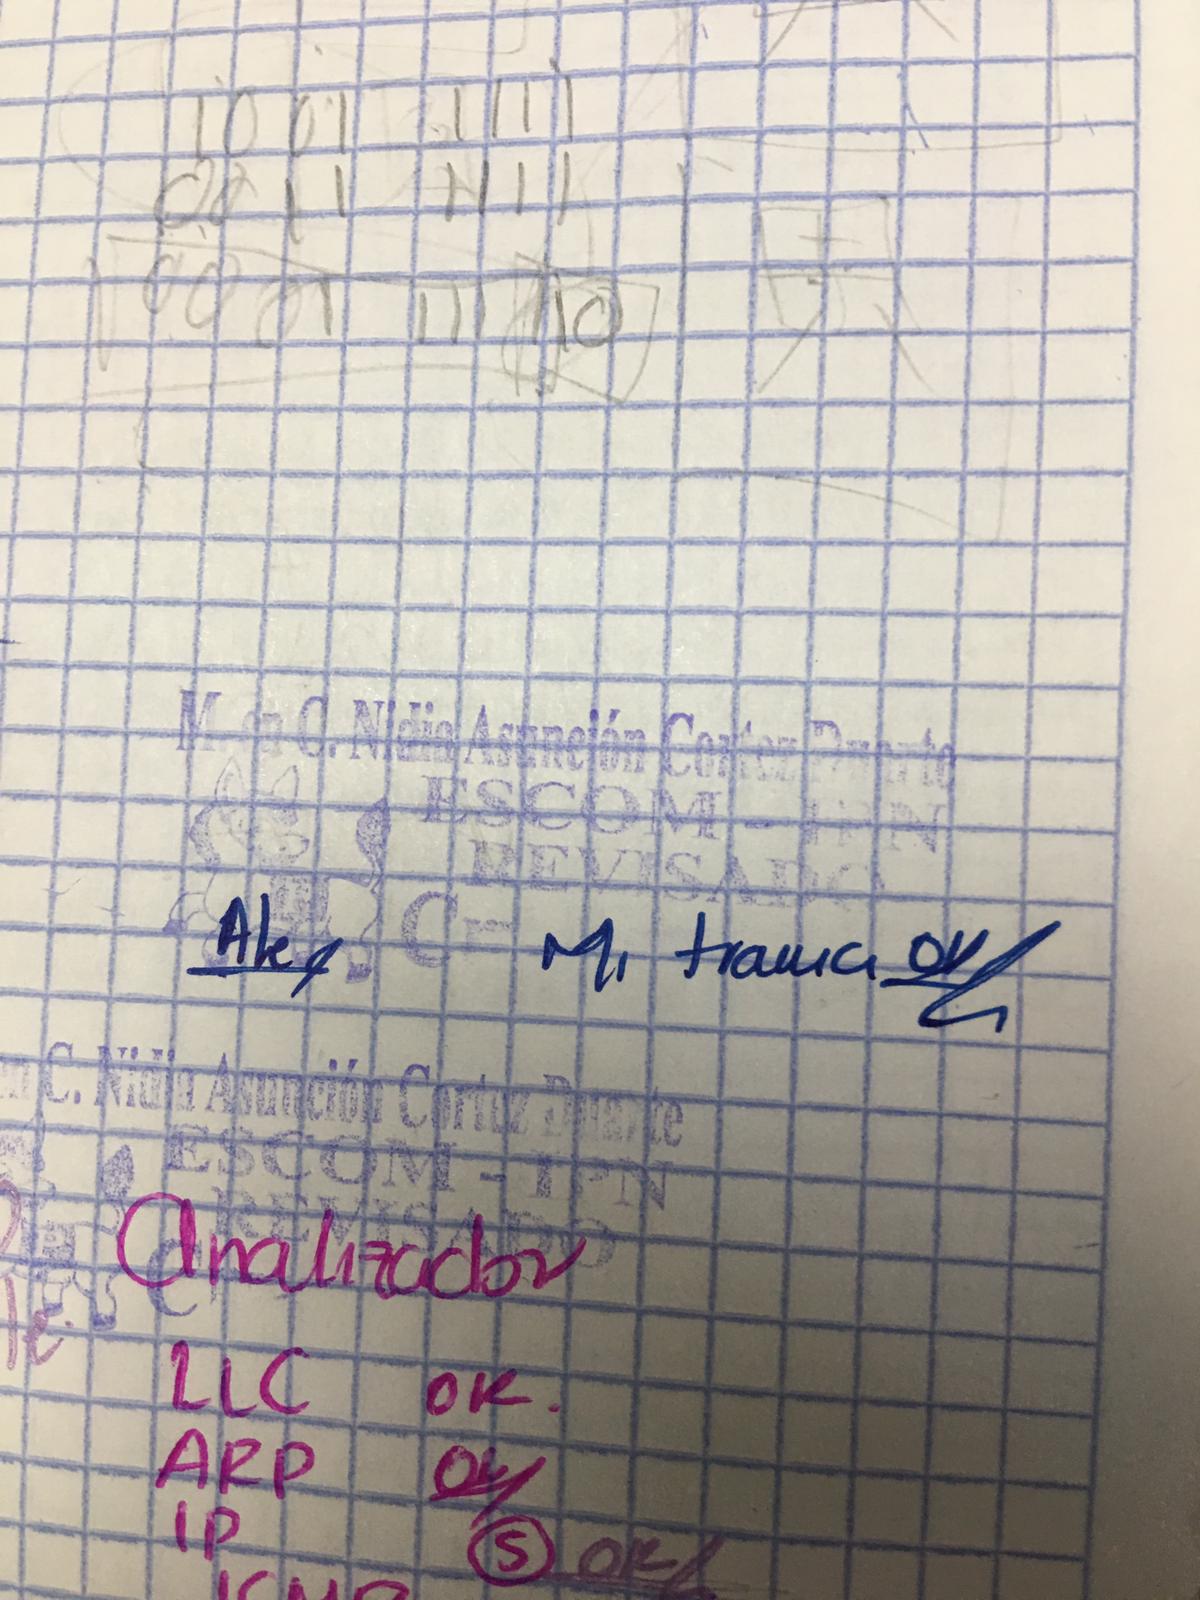 1001 1111
0011 1111
0001 111110
M. en C. Nidia Asunción Cortez Duarte
ESCOM - IPN
REVISADO
Ale M, trama OK
en C. Nidia Asunción Cortez Duarte
ESCOM - IPN
REVISADO
Analizador
LLC OK.
ARP OK
IP 5 OK
ICMP